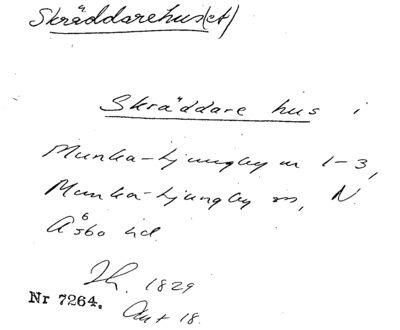 Skräddarehus(et)
Skräddare hus i
Munka-Ljungby nr 1-3,
Munka-Ljungby sn, N.
Åsbo hd.
1829
Nr 7264. Akt 18.